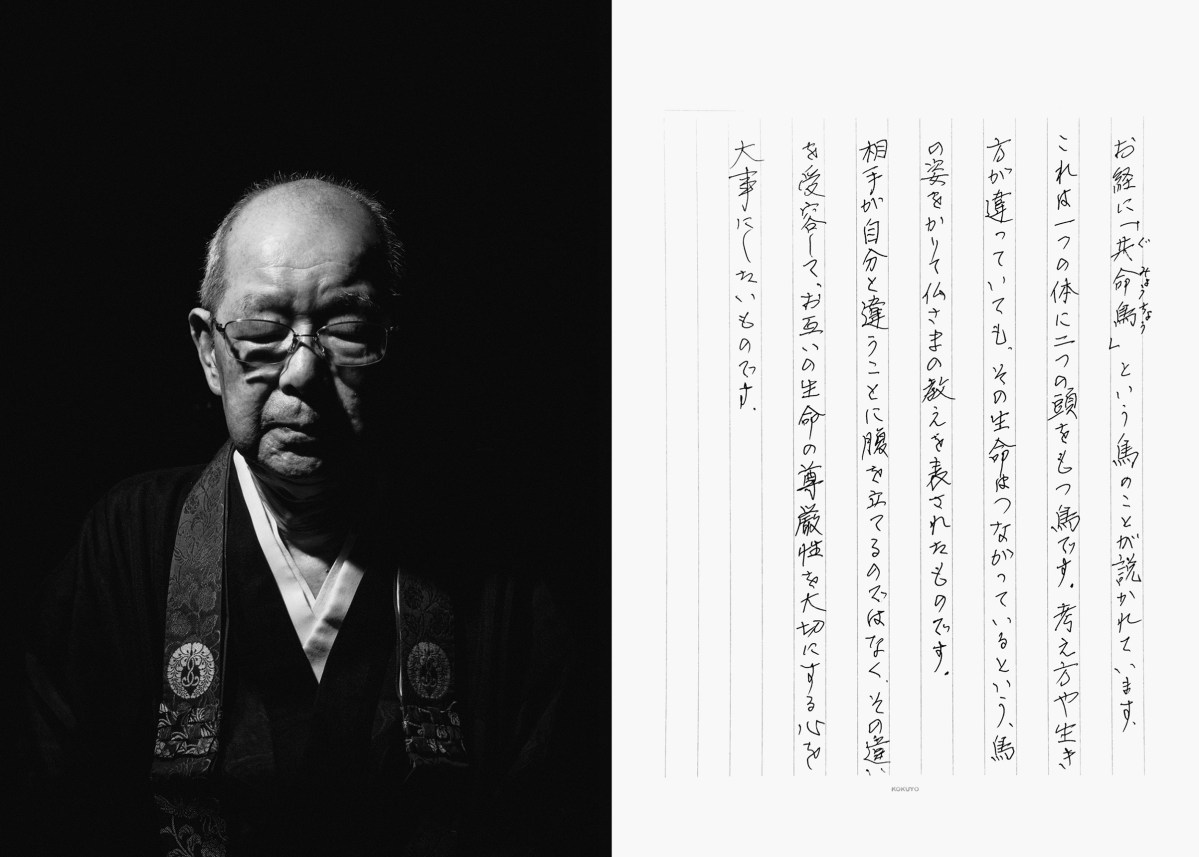 ぐみょうちょう
お経に「共命鳥」という鳥のことが説かれています。
これは一つの体に二つの頭をもつ鳥です。考え方や生き
方が違っていても、その生命はつながっているという、鳥
の姿をかりて仏さまの教えを表されたものです。
相手が自分と違うことに腹を立てるのではなく、その違い
を受容して、お互いの生命の尊厳性を大切にする心を
大事にしたいものです。
KOKUYO